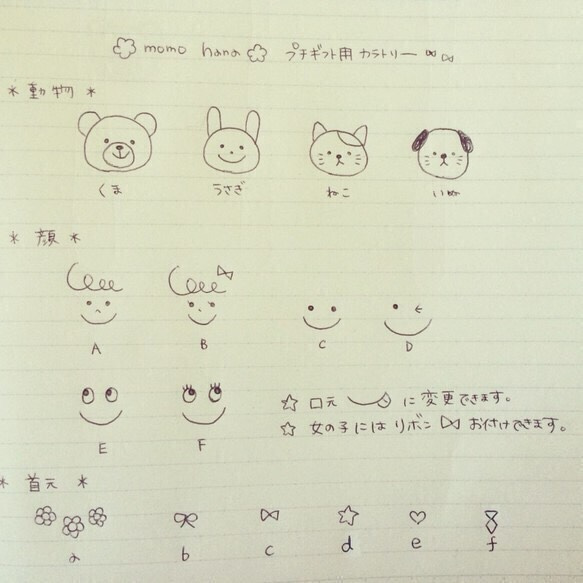 momo hana プチギフト用 カラトリー
* 動物 *
くま うさぎ ねこ いぬ
* 顔 *
A B C D
E F
☆ 口元 に変更できます。
☆ 女の子には リボン お付けできます。
* 首元 *
a b c d e f